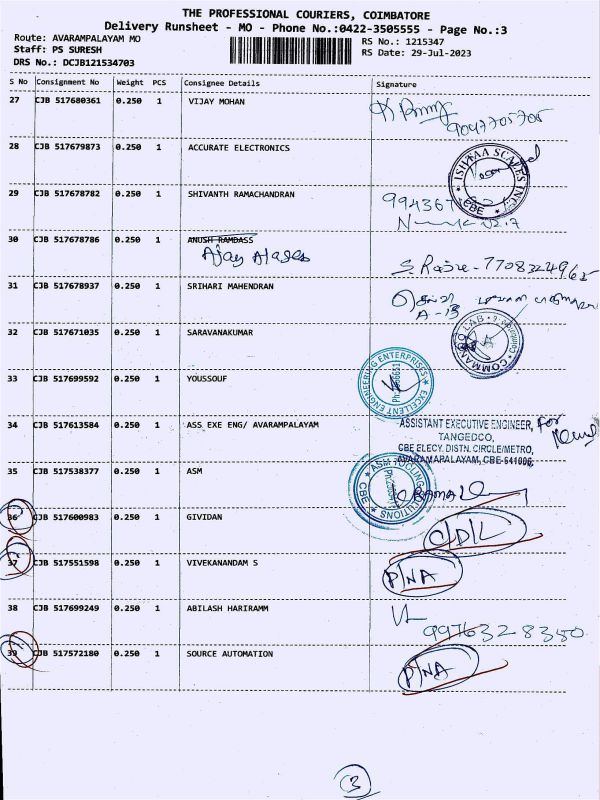 THE PROFESSIONAL COURIERS, COIMBATORE
Delivery Runsheet - MO - Phone No.:0422-3505555 - Page No.:3
Route: AVARAMPALAYAM MO
Staff: PS SURESH
DRS No.: DCJB121534703
RS No.: 1215347
RS Date: 29-Jul-2023
S No Consignment No Weight PCS Consignee Details Signature
27 CJB 517680361 0.250 1 VIJAY MOHAN
9047705705
28 CJB 517679873 0.250 1 ACCURATE ELECTRONICS
ISHTAA SCALES INC. CBE
29 CJB 517678782 0.250 1 SHIVANTH RAMACHANDRAN
30 CJB 517678786 0.250 1 ANUSH RAMDASS
Ajay
7708324965
31 CJB 517678937 0.250 1 SRIHARI MAHENDRAN
A-13
32 CJB 517671035 0.250 1 SARAVANAKUMAR
LAB
33 CJB 517699592 0.250 1 YOUSSOUF
EXCELLENT ENGINEERING ENTERPRISES
34 CJB 517613584 0.250 1 ASS EXE ENG/ AVARAMPALAYAM
ASSISTANT EXECUTIVE ENGINEER, For
TANGEDCO,
CBE ELECY. DISTN. CIRCLE/METRO,
AVARAMPALAYAM, CBE-641006,
35 CJB 517538377 0.250 1 ASM
ASM TOOLING SOLUTIONS CBE
36 CJB 517600983 0.250 1 GIVIDAN
C/D/L
37 CJB 517551598 0.250 1 VIVEKANANDAM S
P/NA
38 CJB 517699249 0.250 1 ABILASH HARIRAMM
9976328350
39 CJB 517572180 0.250 1 SOURCE AUTOMATION
P/NA
3